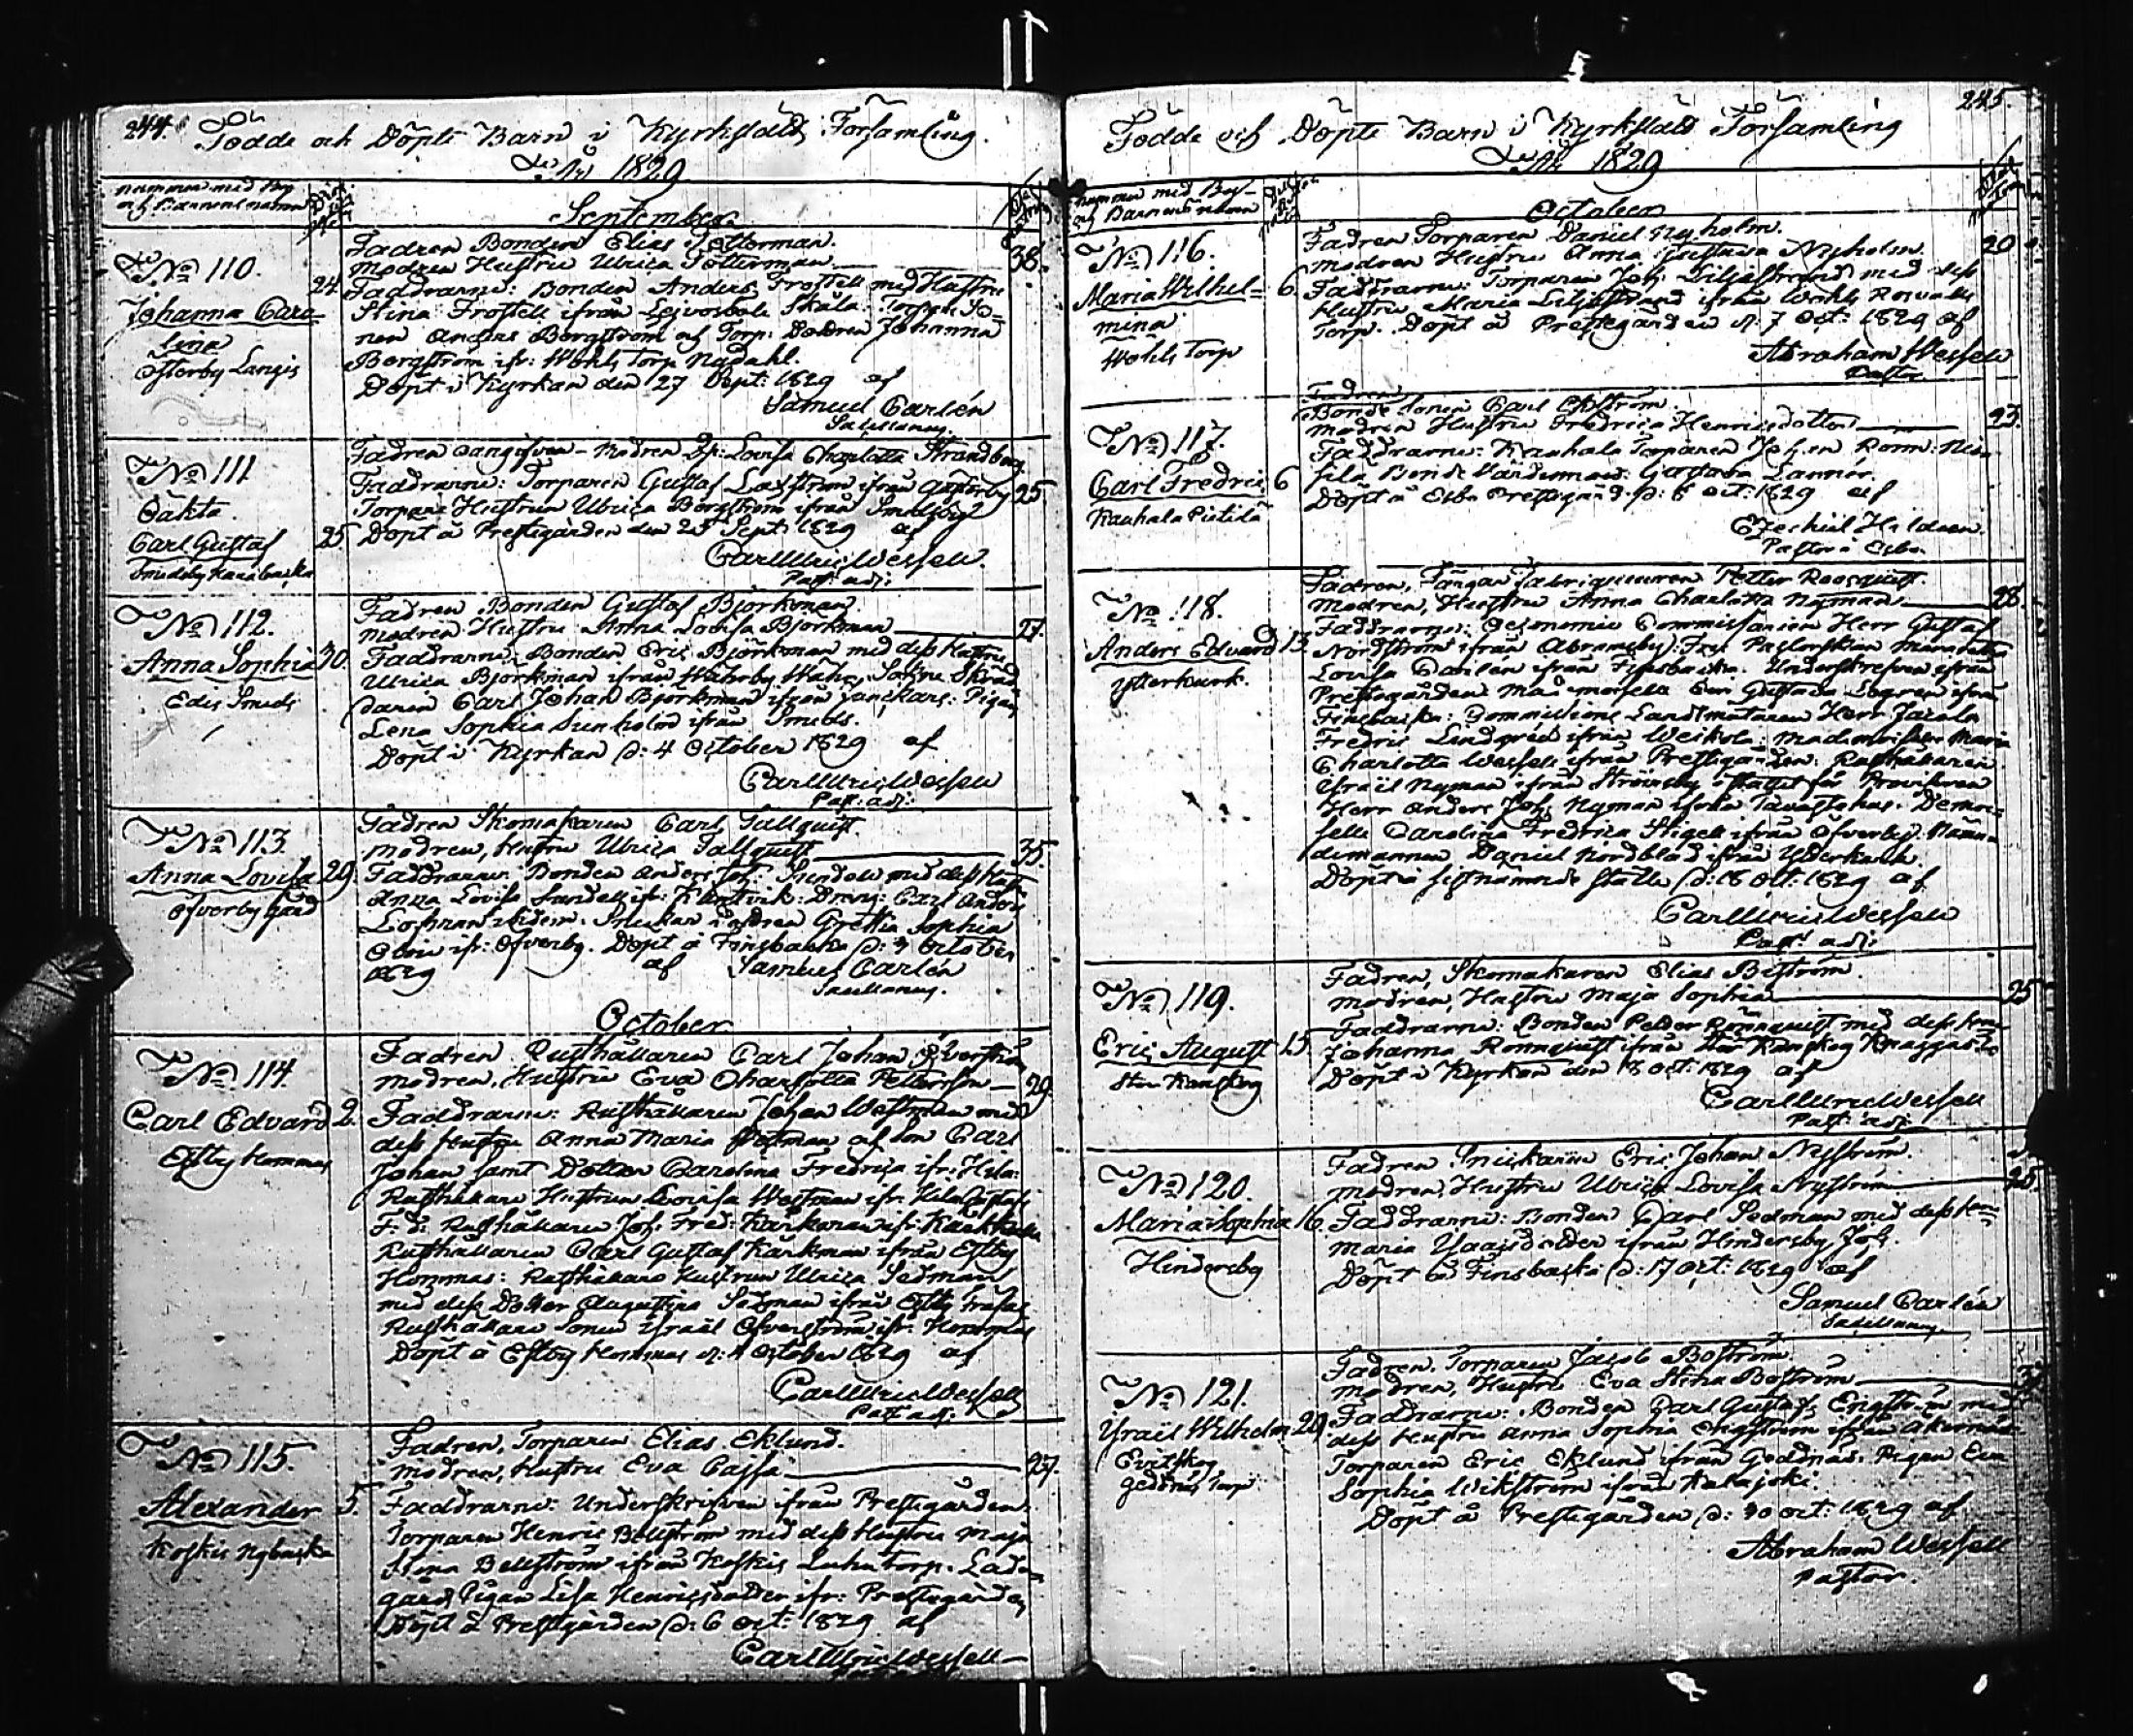 244.
Födde och Döpte Barn i Kyrkslätt Församling.
År 1829
nummer med By
och Barnens namn
September
No 110.
Johanna Caro-
lina
Österby Langis
24
Fadren Bonden Elias Sölterman.
Modren Hustru Ulrica Sölterman
38.
Faddrarne: Bonden Anders Frostell med Hustru
Stina Frostell ifrån
nen Anders Bergström och Torp: Dottren Johanna
Bergström ifr: Wohls Torp Nydahl.
Döpt i Kyrkan den 27 Sept: 1829 af
Samuel Carlén
No 111
Oäkta
Carl Gustaf
25
Fadren oangifven - Modren Lovisa Charlotta Strandberg
25
Faddrarne: Torparen Gustaf ifrån
Torpare Hustrun Ulrica Bergström ifrån Smedsby
Döpt å Prestegården den 25 Sept: 1829 af
Carl Ulric Wessell.
Past: adj:
No 112.
Anna Sophia
30.
Edis Smeds
Fadren Bonden Gustaf Björkman
Modren Hustru Anna Lovisa Björkman
27.
Faddrarne: Bonden Eric Björkman med dess Hustru
Ulrica Björkman ifrån
daren Carl Johan Björkman ifrån Pigan
Lena Sophia ifrån Smeds.
Döpt i Kyrkan d: 4 October 1829 af
Carl Ulric Wessell
Past: adj:
No 113
Anna Lovisa
29.
Öfverby Gård
Fadren Skomakaren Carl Tallquist.
Modren, Hustru Ulrica Tallquist
35.
Faddrarne: Bonden Anders Joh: med dess Hust:
Anna Lovisa ifr: Kantvik: Dreng: Carl Anders
Grethia Sophia
ifr: Öfverby. Döpt å Finsbacka d: October
1829 af Samuel Carlén
October
No 114.
Carl Edvard
2.
Estby Hommas
Fadren Rusthållaren Carl Johan Öfverström
Modren. Hustru Eva Charlotta Pettersson
29.
Faddrarne: Rusthållaren Johan Westman med
dess Hustru Anna Maria Westman och Son Carl
Johan samt Dotter Carolina Fredrica ifr: Hila:
Rusthållare Hustrun Lovisa Westman ifr: Hila
Rusthållaren Joh: Fred: ifr:
Rusthållaren Carl Gustaf Karkman ifrån Estby
Hommas: Rusthållare Hustrun Ulrica Sedman
med dess Dotter Augustina Sedman ifrån Estby
Rusthållare Sonen Israël Öfverström ifr: Hommas
Döpt å Estby Hommas d: 4 October 1829 af
Carl Ulric Wessell
Past: adj:
No 115.
Alexander
5.
Koskis Nybacka
Fadren, Torparen Elias Eklund.
Modren, Hustru Eva Cajsa
27.
Faddrarne: Underskrifven ifrån Prestegården
Torparen Henric Bellström med dess Hustru Maja
Stina Bellström ifrån Koskis Torp. Lade-
gårds Pigan Lisa Henricsdotter ifr: Prestegården
Döpt å Prestgården d: 6 Oct: 1829 af
Carl Ulric Wessell
245.
Födde och Döpte Barn i Kyrkslätt Församling
År 1829
nummer med By-
och Barnens namn
October
No 116.
Maria Wilhel-
6.
mina
Wohls Torp
Fadren Torparen Daniel Nyholm.
Modren Hustru Anna Gustava Nyholm
20
Faddrarne: Torparen Joh: Liljestrand med dess
Hustru Maria Liljestrand ifrån Wohls
Torp. Döpt å Prestegården d: 7 Oct: 1829 af
Abraham Wessell
Pastor.
No 117.
Carl Fredric
6
Kauhala Pietilä
Fadren
Bonde Sonen Carl Ekström
Modren Hustru Fredrica Henricsdotter
23.
Faddrarne: Kauhala Torparen Joh:
Gustava
Döpt å Esbo Prestegård. d: Oct: 1829 af
Pastor i Esbo.
No 118.
Anders Edvard
13.
Ytterkurk.
Fadren, Petter Roosquist.
Modren, Hustru Anna Charlotta Nyman
28.
Faddrarne: Oeconomie Commissarien Herr Gustaf
Nordström ifrån
Lovisa Carlén ifrån Finsbacka. Underskrefven ifrån
Prestegården Mademoiselle Eva Gustava ifrån
Finsbacka: Commissions Landtmätaren Herr
Fredric Lindqvist ifrån Weikola: Mademoiselle Maria
Charlotta Wessell ifrån Prestegården: Rusthållaren
Israël Nyman ifrån Strömsby i stället för Provisoren
Herr Anders Joh: Nyman ifrån Tavastehus. Demoi-
selle Carolina Fredrica ifrån Öfverby. Nämn-
demannen Daniel Nordblad ifrån Ytterkurk.
Döpt å sistnämnde ställe d: 18 Oct: 1829 af
Carl Ulric Wessell
Past: adj:
No 119.
Eric August
15
Stor Kanskog
Fadren, Skomakaren Elias Biström.
Modren, Hustru Maja Sophia
25
Faddrarne: Bonden Petter Rönnquist med dess Hustru
Johanna Rönnquist ifrån Stor Kanskog
Döpt i Kyrkan den 18 Oct: 1829 af
Carl Ulric Wessell
Past: adj:
No 120.
Maria Sophia
16.
Hindersby
Fadren Snickaren Eric Johan Nyström.
Modren, Hustru Ulrica Lovisa Nyström
25.
Faddrarne: Bonden Carl Sedman med dess
Maria ifrån Hindersby
Döpt å Finsbacka d: 17 Oct: 1829 af
Samuel Carlén
No 121.
Israël Wilhelm
29.
Evitskog
Geddnäs Torp
Fadren, Torparen Jacob Boström.
Modren, Hustru Eva Stina Boström
Faddrarne: Bonden Carl Gustaf Engström med
dess Hustru Anna Sophia Engström ifrån
Torparen Eric Eklund ifrån Geddnäs. Pigan Eva
Sophia Wikström ifrån
Döpt å Prestegården d: 30 Oct: 1829 af
Abraham Wessell
Pastor.